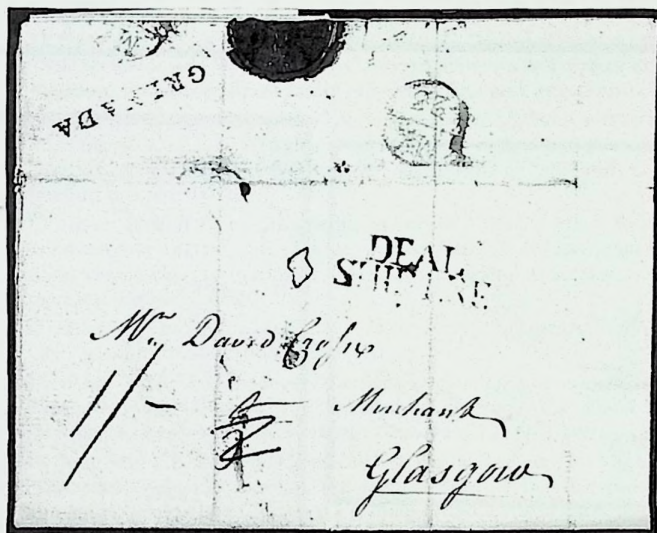 GRENADA
DEAL
SHIP LRE
Mr. David
1/-
Merchant
Glasgow